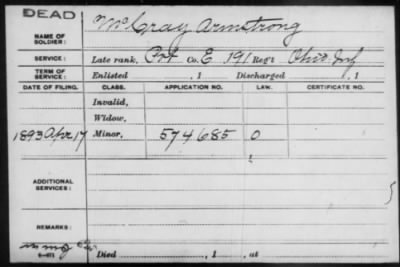 DEAD
NAME OF SOLDIER: McCray Armstrong
SERVICE: Late rank, Pvt Co. E 191 Reg't Ohio Inf
TERM OF SERVICE: Enlisted , 1 Discharged , 1
DATE OF FILING. CLASS. APPLICATION NO. LAW. CERTIFICATE NO.
Invalid,
Widow,
1893 Apr 17 Minor, 574685 0
ADDITIONAL SERVICES:
REMARKS:
Died , 1 , at